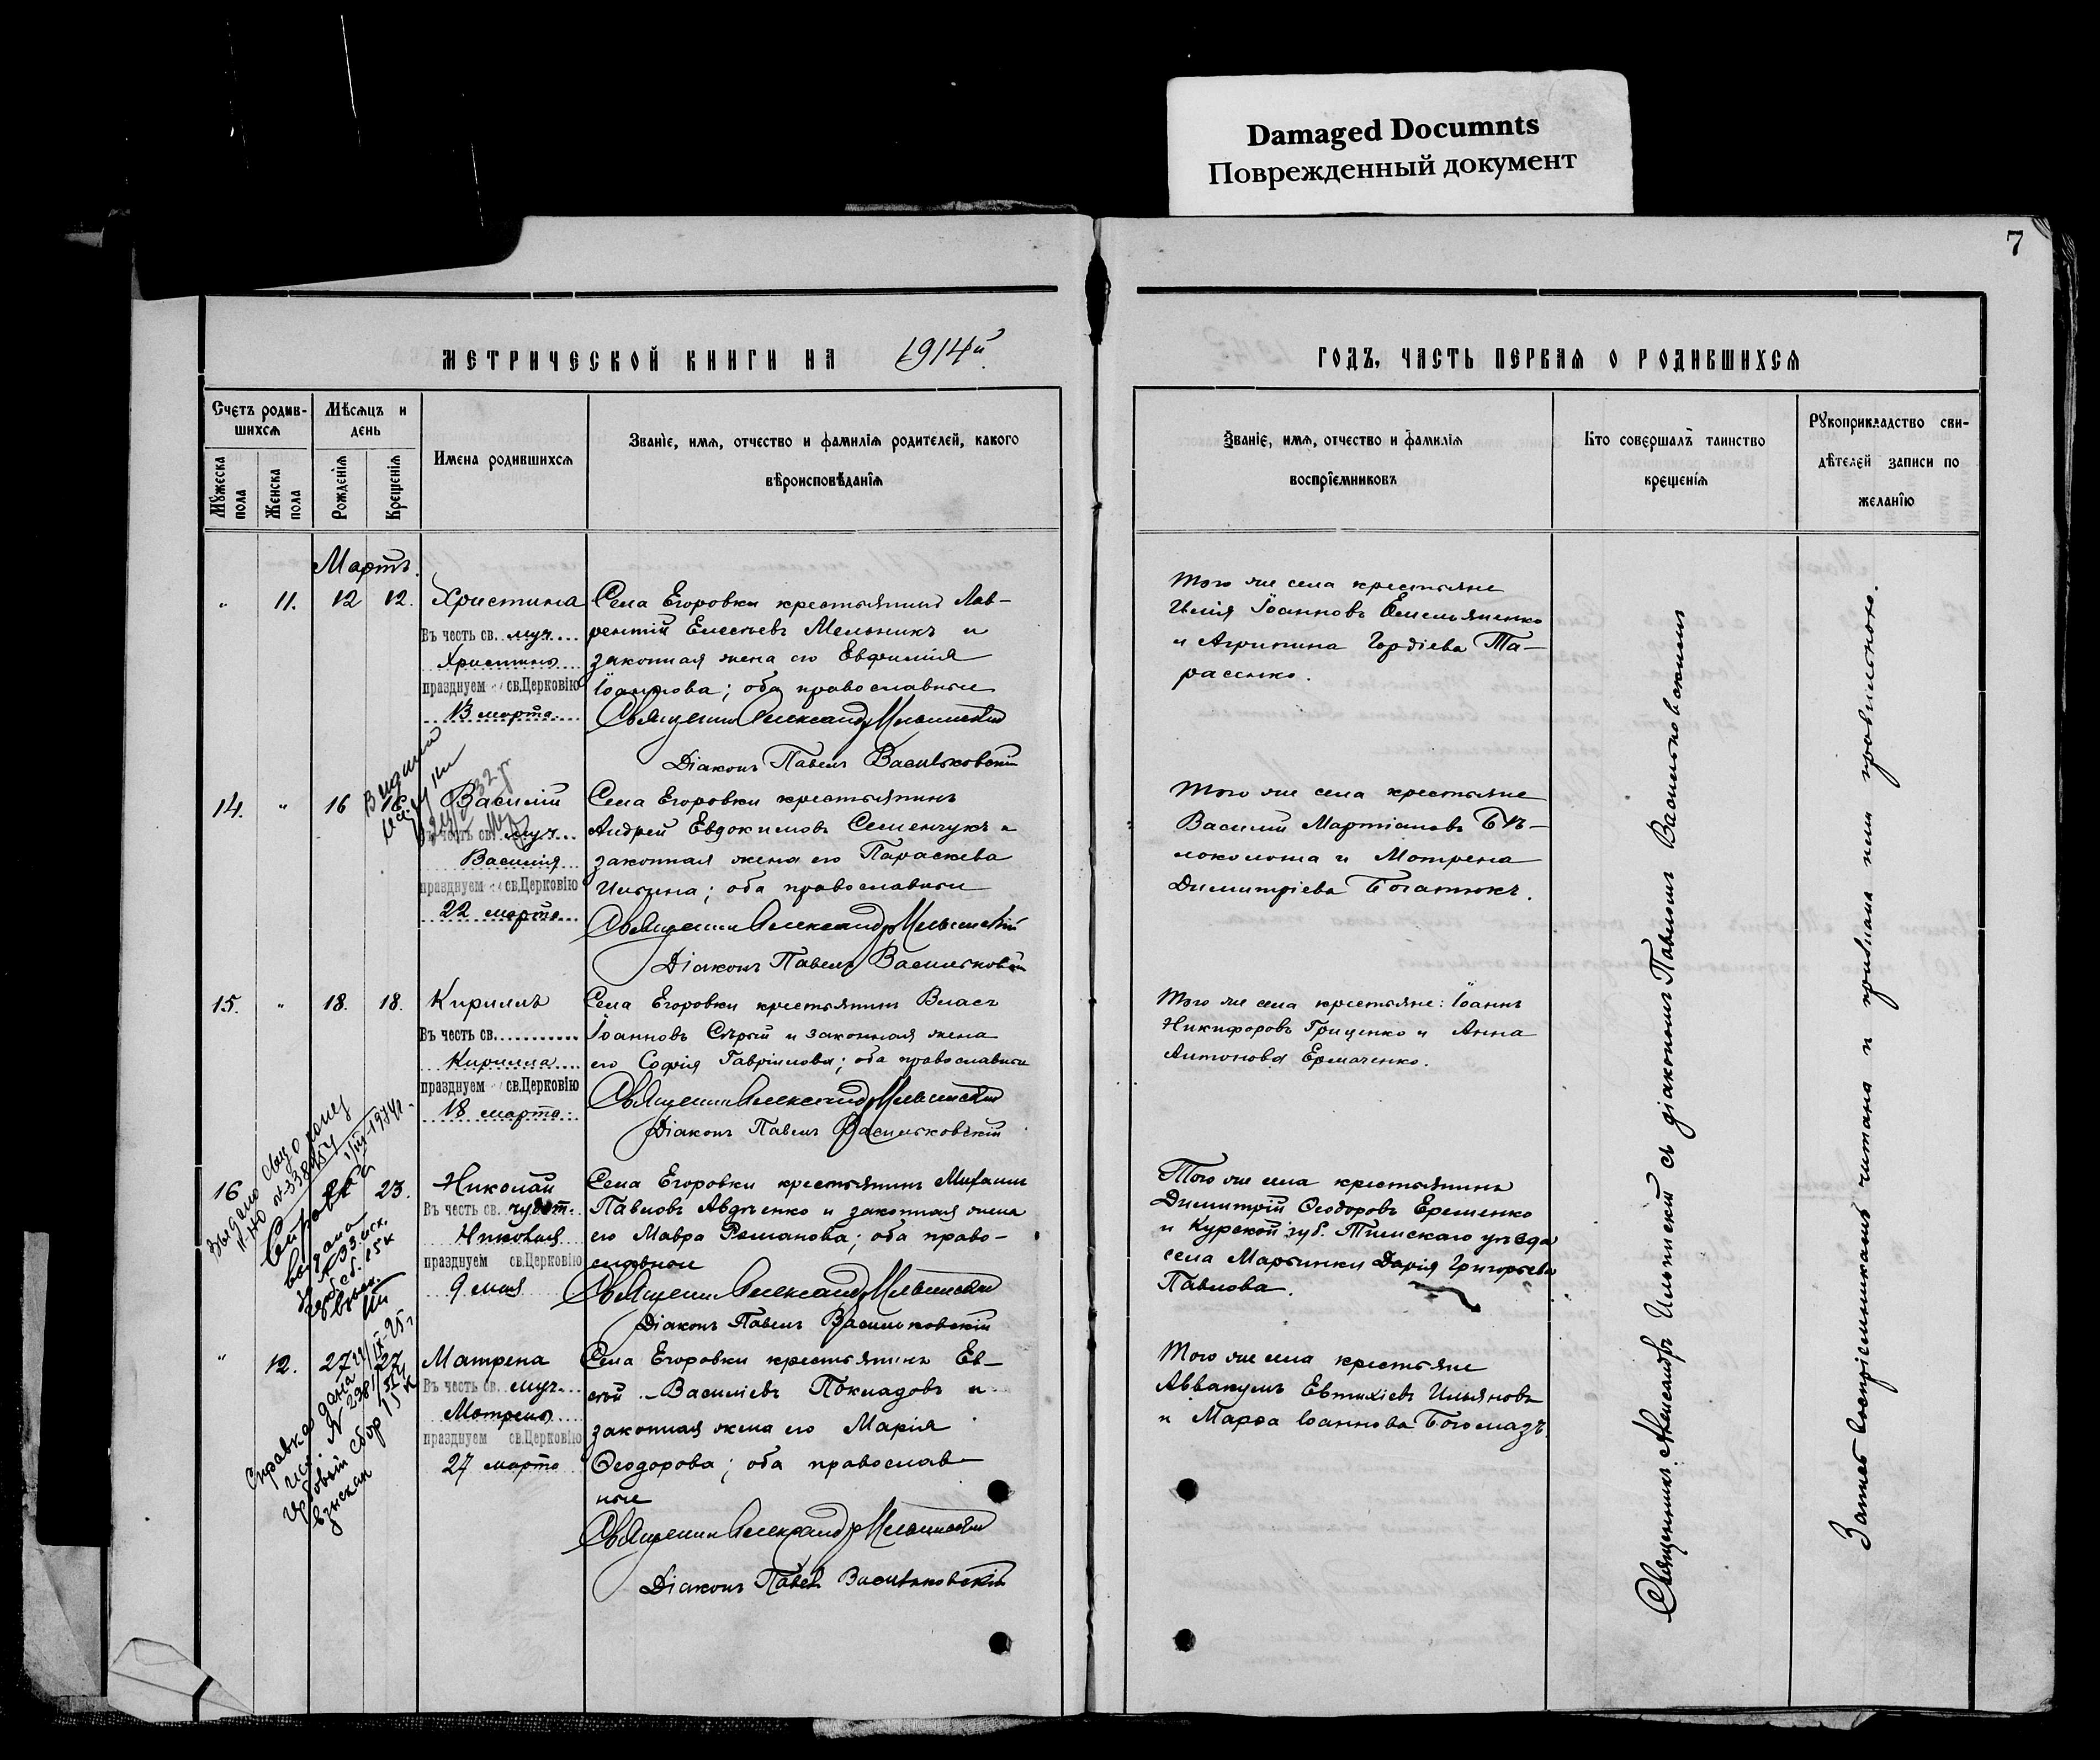 Damaged Documnts
Поврежденный документ
7
МЕТРИЧЕСКОЙ КНИГИ НА 1914й
ГОДЪ, ЧАСТЬ ПЕРВАЯ О РОДИВШИХСЯ
Счетъ родив-
шихся
Мѣсяцъ и
день
Мужеска
пола
Женска
пола
Рожденія
Крещенія
Имена родившихся
Званіе, имя, отчество и фамилія родителей, какого
вѣроисповѣданія
Званіе, имя, отчество и фамилія
воспріемниковъ
Кто совершалъ таинство
крещенія
Рукоприкладство сви-
дѣтелей записи по
желанію
Мартъ.
" 11. 12 12.
Христина
Въ честь св. муч.
Христины
празднуем св.Церковію
13 марта
Села Егоровки крестьянинъ Лав-
рентій Елисѣевъ Мельникъ и
законная жена его Евфимія
Іоаннова; оба православные
Священникъ Александръ Ильинскій
Діаконъ Павелъ Васильковскій
Того же села крестьяне
Илія Іоанновъ Емельяненко
и Агрипина Гордіева Та-
расенко.
14. " 16 16
Василій
Въ честь св. муч
Василія
празднуем св.Церковію
22 марта
Села Егоровки крестьянинъ
Андрей Евдокимовъ Семенчукъ и
законная жена его Параскева
Ильина; оба православные
Священникъ Александръ Ильинскій
Діаконъ Павелъ Васильковскій
Того же села крестьяне
Василій Мартіановъ Бѣ-
локолоша и Мотрена
Димитріева Богатюкъ.
15. " 18. 18.
Кириллъ
Въ честь св.
Кирилла
празднуем св.Церковію
18 марта
Села Егоровки крестьянинъ Власъ
Іоанновъ Сѣрый и законная жена
его Софія Гавріилова; оба православные
Священникъ Александръ Ильинскій
Діаконъ Павелъ Васильковскій
Того же села крестьяне: Іоаннъ
Никифоровъ Гриценко и Анна
Антонова Ермаченко.
16 23.
Николай
Въ честь св. чудот.
Николая
празднуем св.Церковію
9 мая
Села Егоровки крестьянинъ Михаилъ
Павловъ Авдѣенко и законная жена
его Мавра Романова; оба право-
славные
Священникъ Александръ Ильинскій
Діаконъ Павелъ Васильковскій
Того же села крестьянинъ
Димитрій Ѳеодоровъ Еременко
и Курской губ. Тимскаго уѣзда
села Мартинки Дарія Григорьева
Павлова.
" 12. 27 27
Матрена
Въ честь св. муч.
Матрены
празднуем св.Церковію
27 марта
Села Егоровки крестьянинъ Ев-
сѣй Василіевъ Покладовъ и
законная жена его Марія
Ѳеодорова; оба православ-
ные
Священникъ Александръ Ильинскій
Діаконъ Павелъ Васильковскій
Того же села крестьяне
Аввакумъ Евтихіевъ Ильяновъ
и Марѳа Іоаннова Богомазъ.
Справка
выдана
Справка дана
сбор 15 к
взыскан
Священникъ Александръ Ильинскій съ діакономъ Павломъ Васильковскимъ
Запись воспріемникамъ читана и признана ими правильною.